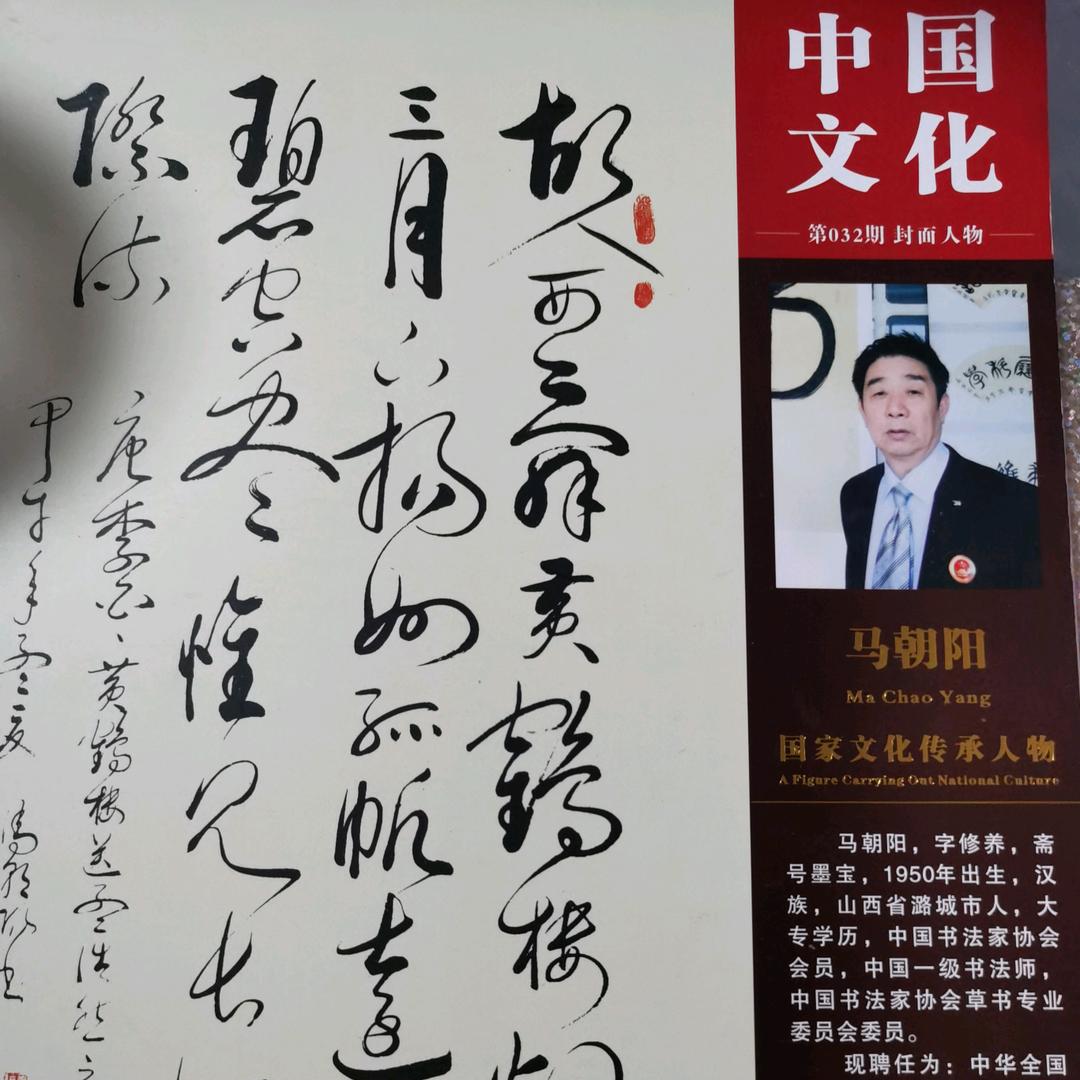 中国
文化
第032期 封面人物
故人西辞黄鶴楼
三月下揚州孤帆遠
碧空盡惟見長
際流
唐李白黄鶴楼送孟浩然之
甲午年孟夏 馬朝陽书
马朝阳
Ma Chao Yang
国家文化传承人物
A Figure Carrying Out National Culture
马朝阳，字修养，斋
号墨宝，1950年出生，汉
族，山西省潞城市人，大
专学历，中国书法家协会
会员，中国一级书法师，
中国书法家协会草书专业
委员会委员。
现聘任为：中华全国